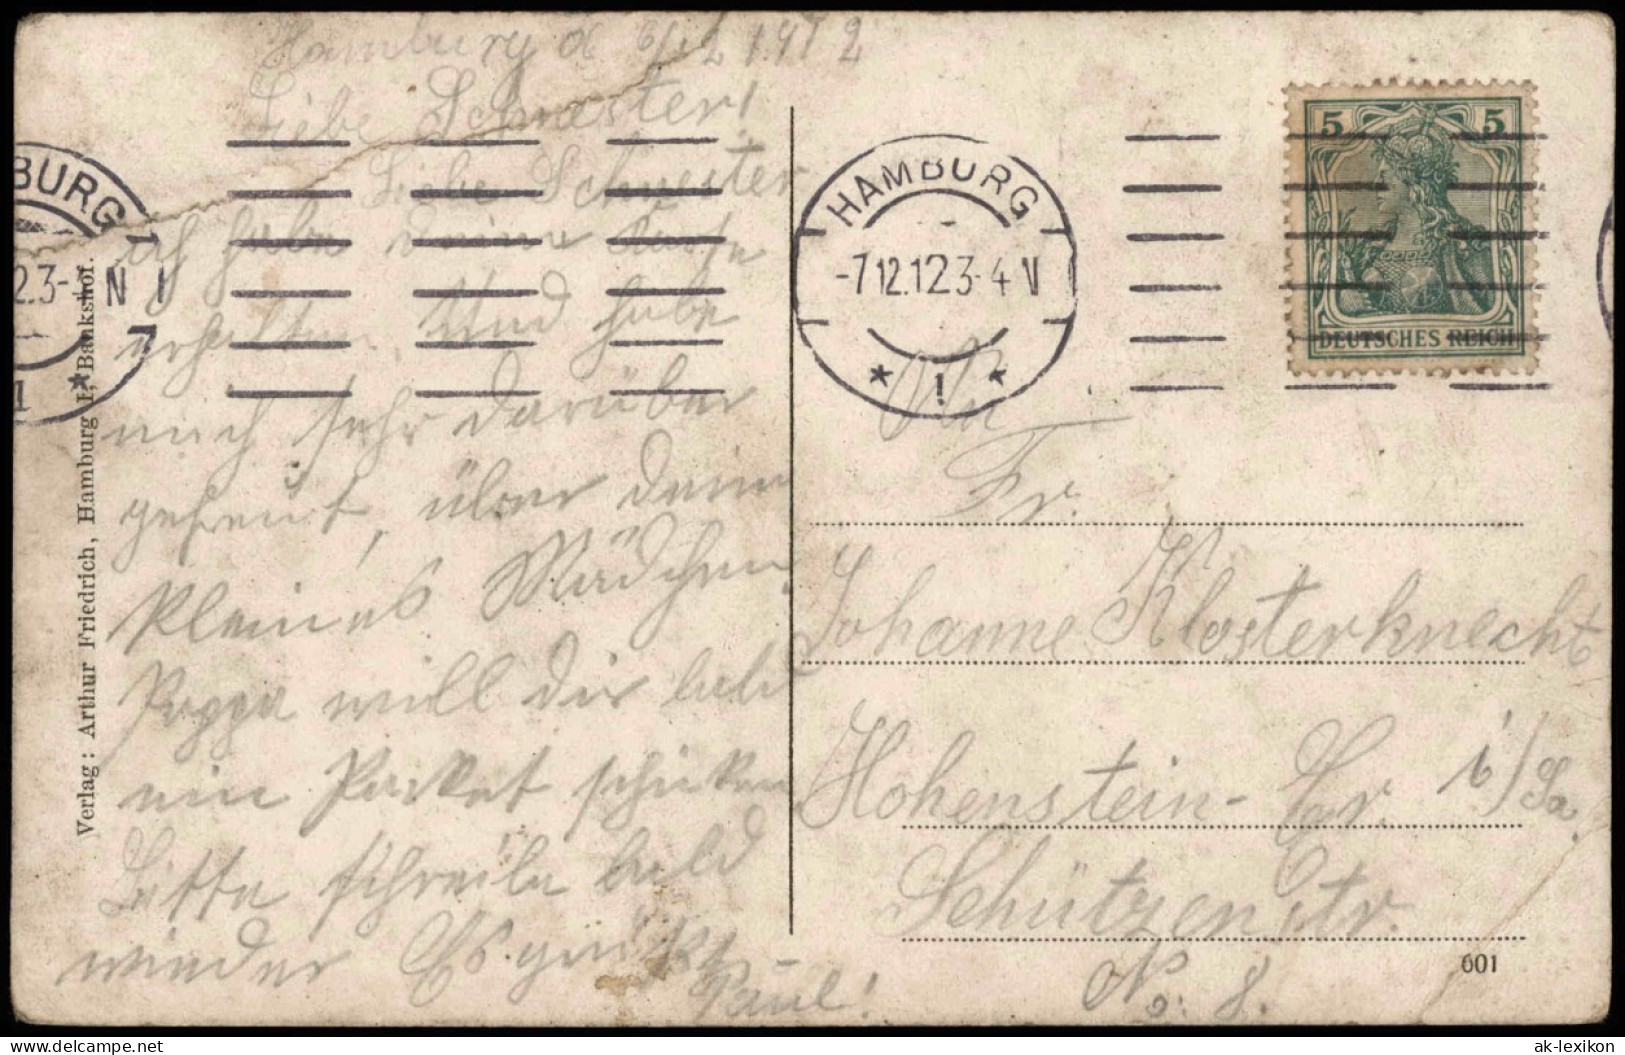 Hamburg d 6/12 1912
Liebe Schwester!
Liebe Schwester
ich habe deine Karte
erhalten. Und habe
mich sehr darüber
gefreut, über dein
kleines Mädchen.
Pappa will dir bald
ein Packet schicken
Bitte schreibe bald
wieder Es grüßt
Paul!
Verlag: Arthur Friedrich, Hamburg I, Bankshof.
BURG 1
2.3-4 N
1
*
HAMBURG
-7.12.12 3-4 N
* 1 *
5 5
DEUTSCHES REICH
An
Fr.
Johanne Klosterknecht
Hohenstein-Er. i/Sa.
Schützenstr.
No. 8.
601
delcampe.net
ak-lexikon